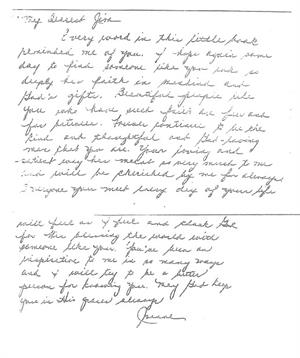 My Dearest Jim
Every word in this little book
reminded me of you. I hope again some
day to find someone like you who so
deeply has faith in mankind and
God's gifts. Beautiful people like
you who have such faith are few and
far between. Forever continue to be the
kind and thoughtful and God-loving
man that you are. Your loving and
way has meant so very much to me
and will be cherished by me for always
Everyone you meet every day of your life
will feel as I feel and thank God
for this blessing the world with
someone like you. You've been an
inspiration to me in so many ways
and I will try to be a better
person for knowing you. May God keep
you in His graces always